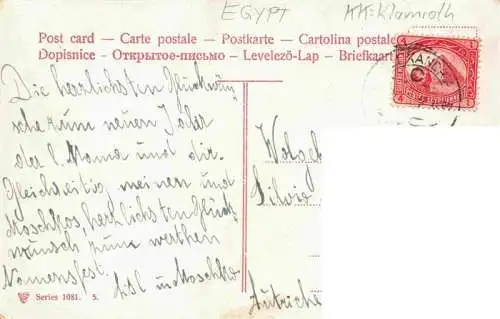 EGYPT KK=Klamroth
Post card — Carte postale — Postkarte — Cartolina postale
Dopisnice - Открытое-письмо - Levelezö-Lap - Briefkaart
Die herzlichsten Glückwün-
sche zum neuen Jahr
der l. Mama und dir.
Gleichzeitig meinen und
Moschkos, herzlichsten Glück-
wunsch zum werthen
Namensfest.
und Moschko
Wolge
Silvio
Autriche
Series 1081. 5.